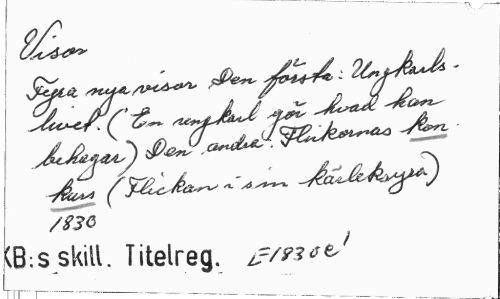 Visor
Fyra nya visor Den första: Ungkarls-
livet. (En ungkarl gör hvad han
behagar) Den andra. Flickornas kon
kurs (Flickan i sin kärleksyra)
1830
KB:s skill. Titelreg. E1830e'